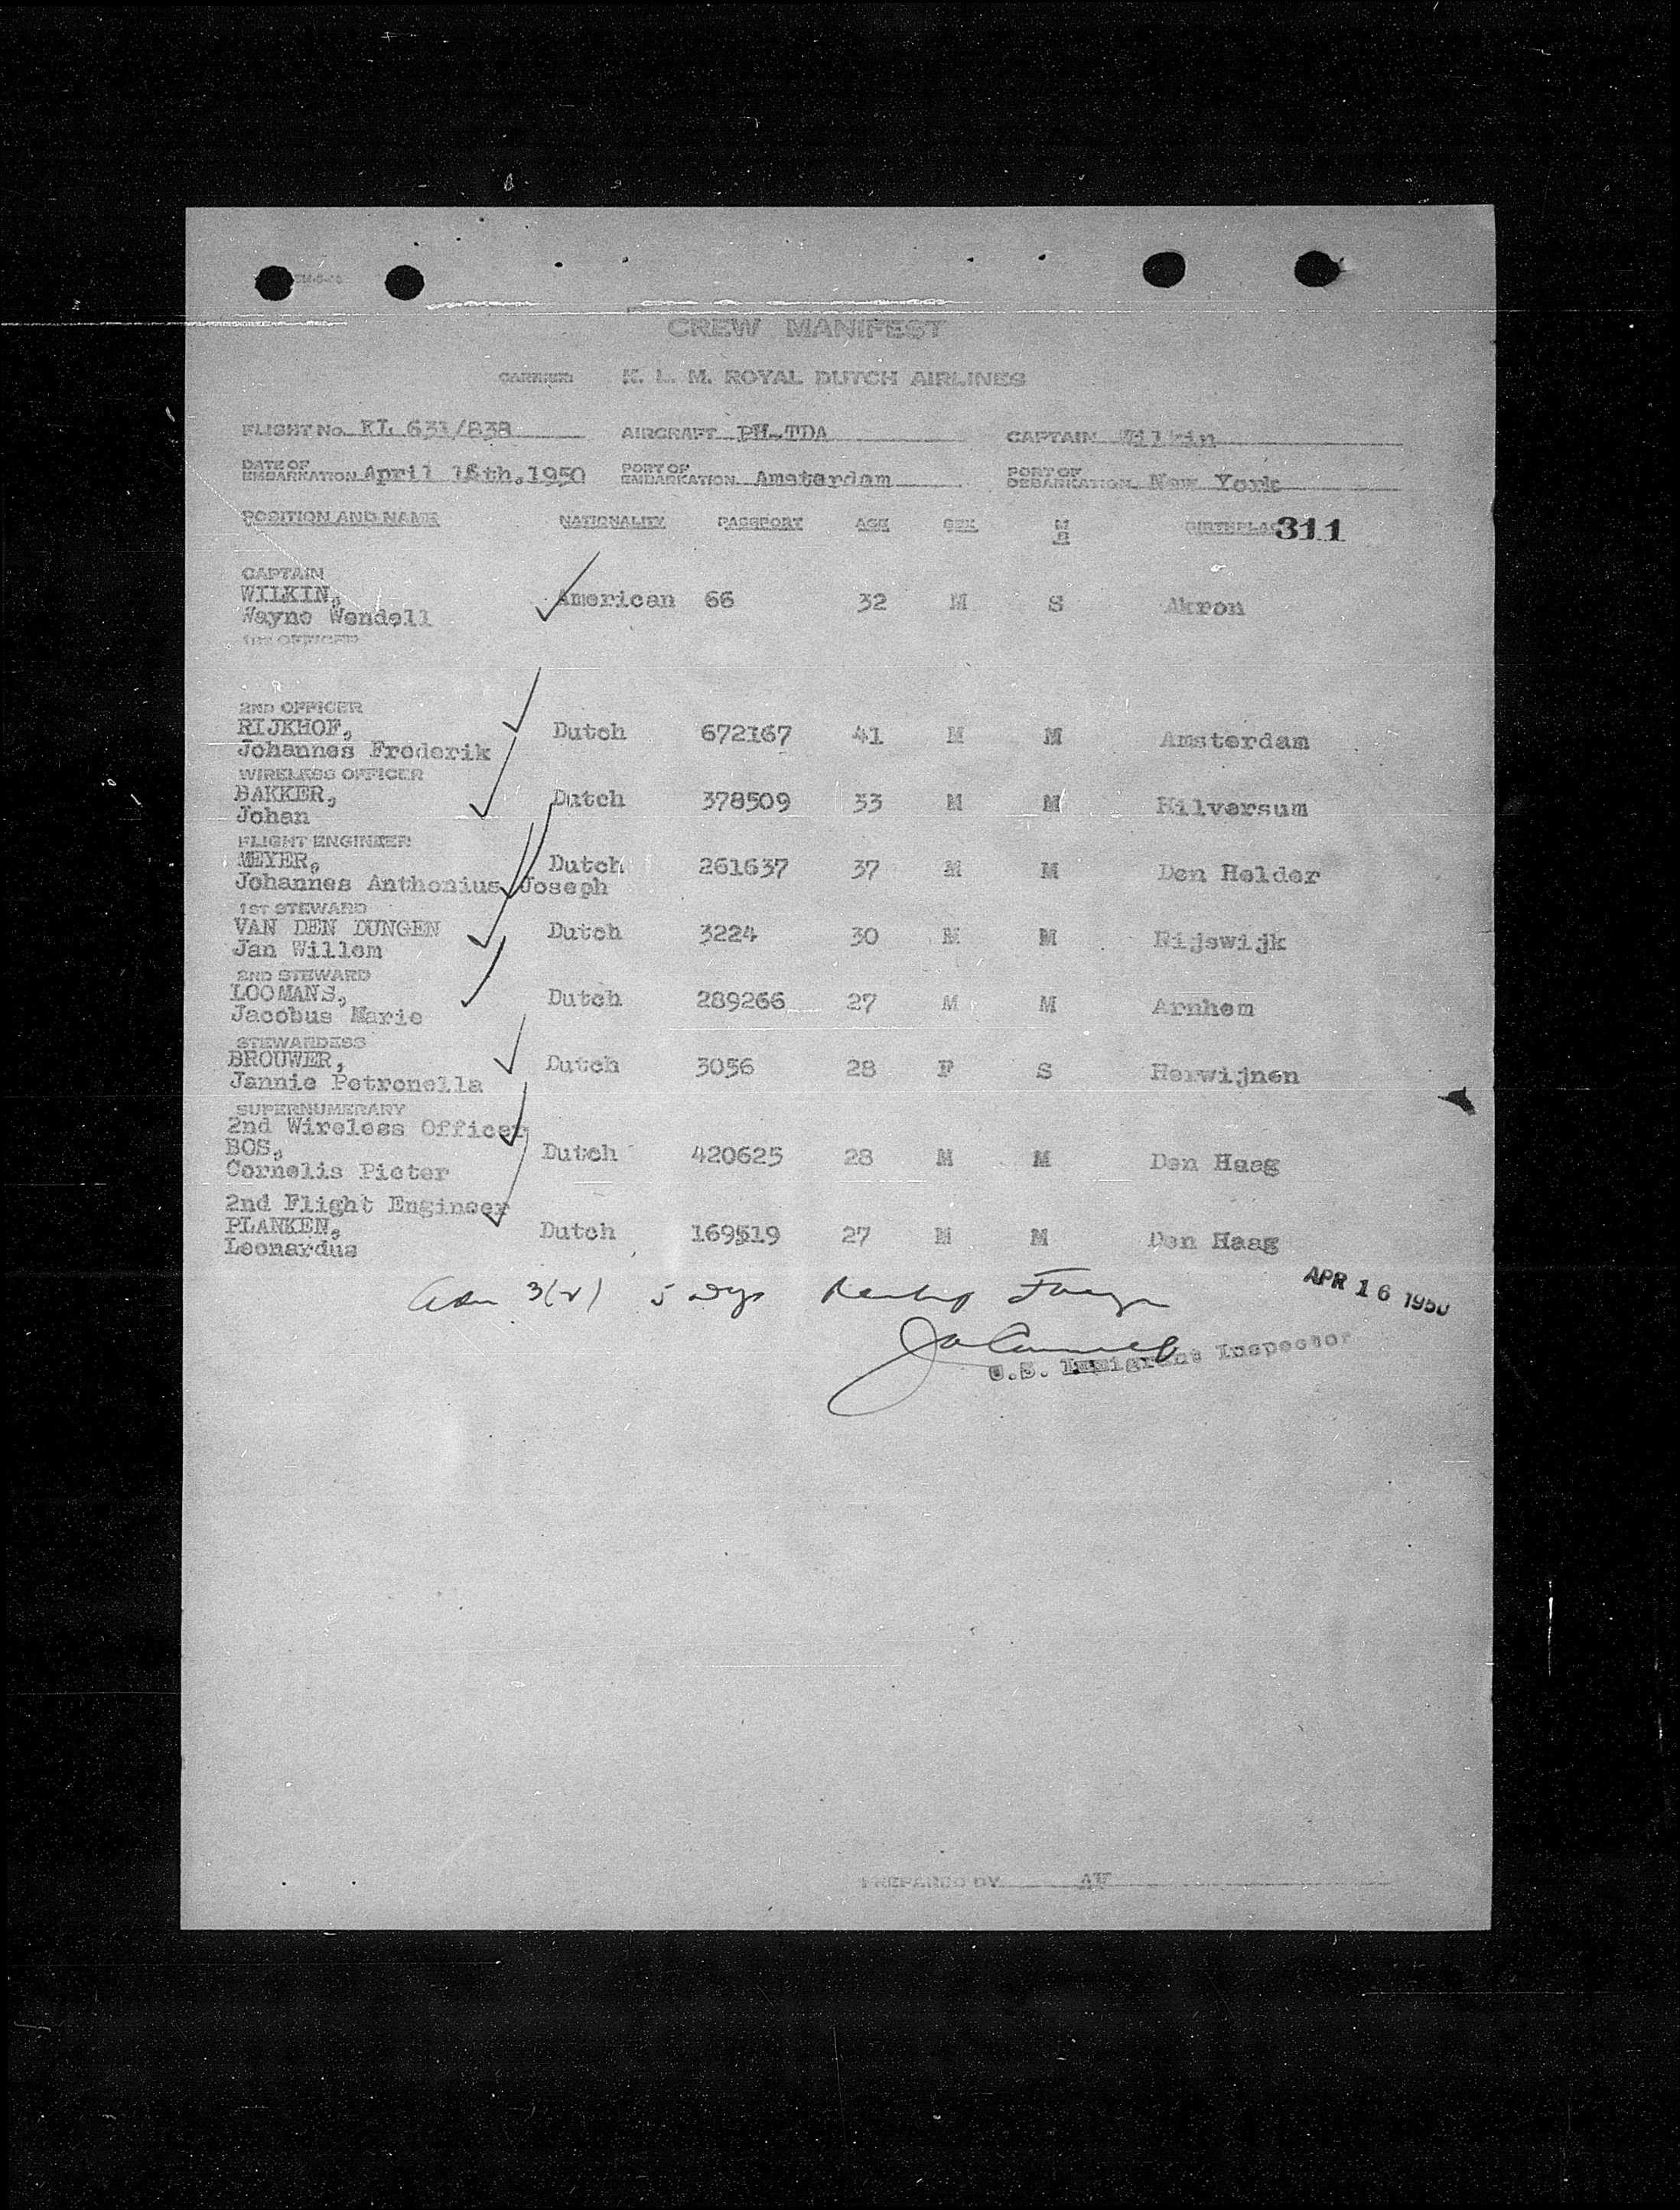 CREW MANIFEST
CARRIER K. L. M. ROYAL DUTCH AIRLINES
FLIGHT No. KL 631/838 AIRCRAFT PH-TDA CAPTAIN Wilkin
DATE OF EMBARKATION April 15th,1950 PORT OF EMBARKATION Amsterdam PORT OF DEBARKATION New York
POSITION AND NAME NATIONALITY PASSPORT AGE SEX M S BIRTHPLACE 311
CAPTAIN
WILKIN,
Wayne Wendell American 66 32 M S Akron
1ST OFFICER
2ND OFFICER
RIJKHOF,
Johannes Frederik Dutch 672167 41 M M Amsterdam
WIRELESS OFFICER
BAKKER,
Johan Dutch 378509 33 M M Hilversum
FLIGHT ENGINEER
MEYER,
Johannes Anthonius Joseph Dutch 261637 37 M M Den Helder
1ST STEWARD
VAN DEN DUNGEN
Jan Willem Dutch 3224 30 M M Rijswijk
2ND STEWARD
LOOMANS,
Jacobus Marie Dutch 289266 27 M M Arnhem
STEWARDESS
BROUWER,
Jannie Petronella Dutch 3056 28 F S Herwijnen
SUPERNUMERARY
2nd Wireless Officer
BOS,
Cornelis Pieter Dutch 420625 28 M M Den Haag
2nd Flight Engineer
PLANKEN,
Leonardus Dutch 169519 27 M M Den Haag
3(2) 5 Dys
APR 16 1950
U.S. Immigrant Inspector
PREPARED BY